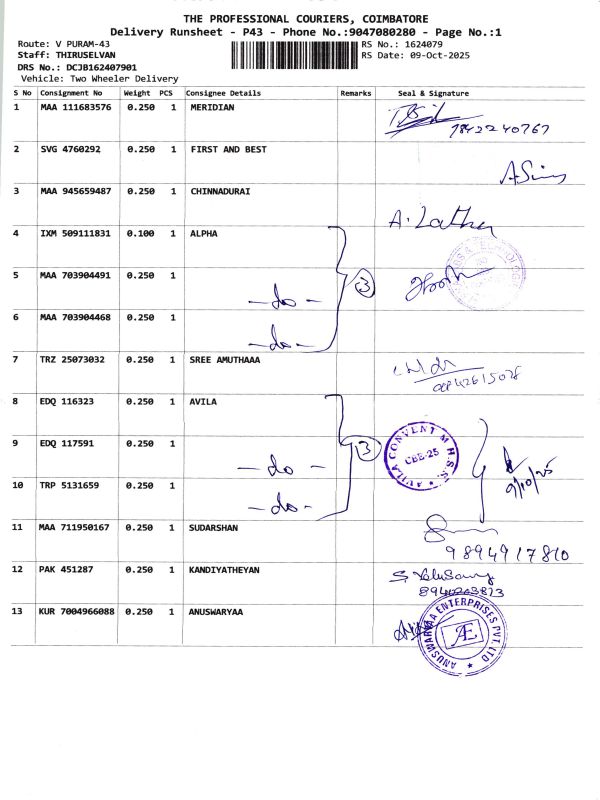 THE PROFESSIONAL COURIERS, COIMBATORE
Delivery Runsheet - P43 - Phone No.:9047080280 - Page No.:1
Route: V PURAM-43 RS No.: 1624079
Staff: THIRUSELVAN RS Date: 09-Oct-2025
DRS No.: DCJB162407901
Vehicle: Two Wheeler Delivery
S No Consignment No Weight PCS Consignee Details Remarks Seal & Signature
1 MAA 111683576 0.250 1 MERIDIAN
9842240767
2 SVG 4760292 0.250 1 FIRST AND BEST
3 MAA 945659487 0.250 1 CHINNADURAI A. Latha
4 IXM 509111831 0.100 1 ALPHA
5 MAA 703904491 0.250 1 -do- 3
6 MAA 703904468 0.250 1 -do-
7 TRZ 25073032 0.250 1 SREE AMUTHAAA
8 EDQ 116323 0.250 1 AVILA
9 EDQ 117591 0.250 1 -do- 3 AVILA CONVENT M.H.S.S. CBE-25 9/10/25
10 TRP 5131659 0.250 1 -do-
11 MAA 711950167 0.250 1 SUDARSHAN
9894917810
12 PAK 451287 0.250 1 KANDIYATHEYAN
13 KUR 7004966088 0.250 1 ANUSWARYAA ANUSWARYAA ENTERPRISES PVT. LTD AE